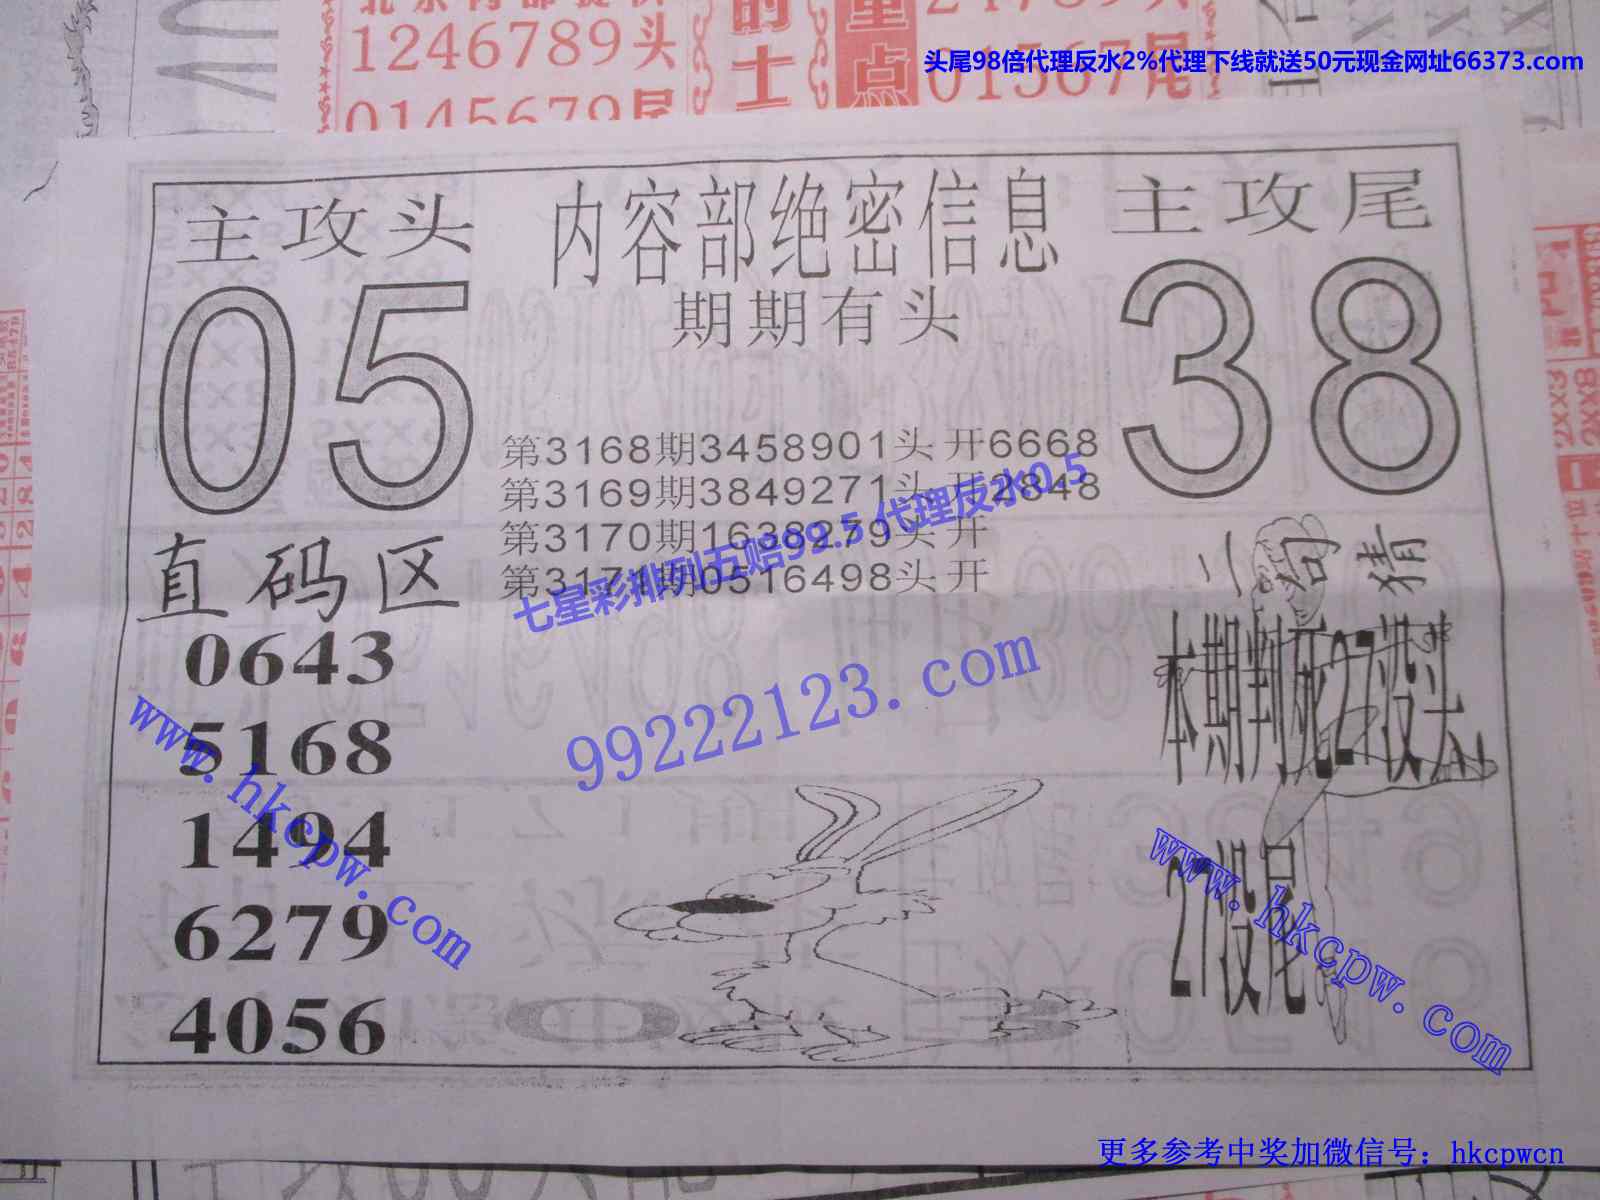 北京内部提供
1246789头
0145679尾
的士
重点
24789头
01567尾
头尾98倍代理反水2%代理下线就送50元现金网址66373.com
主攻头
05
内容部绝密信息
期期有头
主攻尾
38
第3168期3458901头开6668
第3169期3849271头开2848
第3170期1638279头开
第3171期0516498头开
七星彩排列五赔99.5代理反水0.5
直码区
0643
5168
1494
6279
4056
二句猜
本期判死27没头
27没尾
99222123.com
www.hkcpw.com
www.hkcpw.com
2XX3
2XX8
更多参考中奖加微信号：hkcpwcn